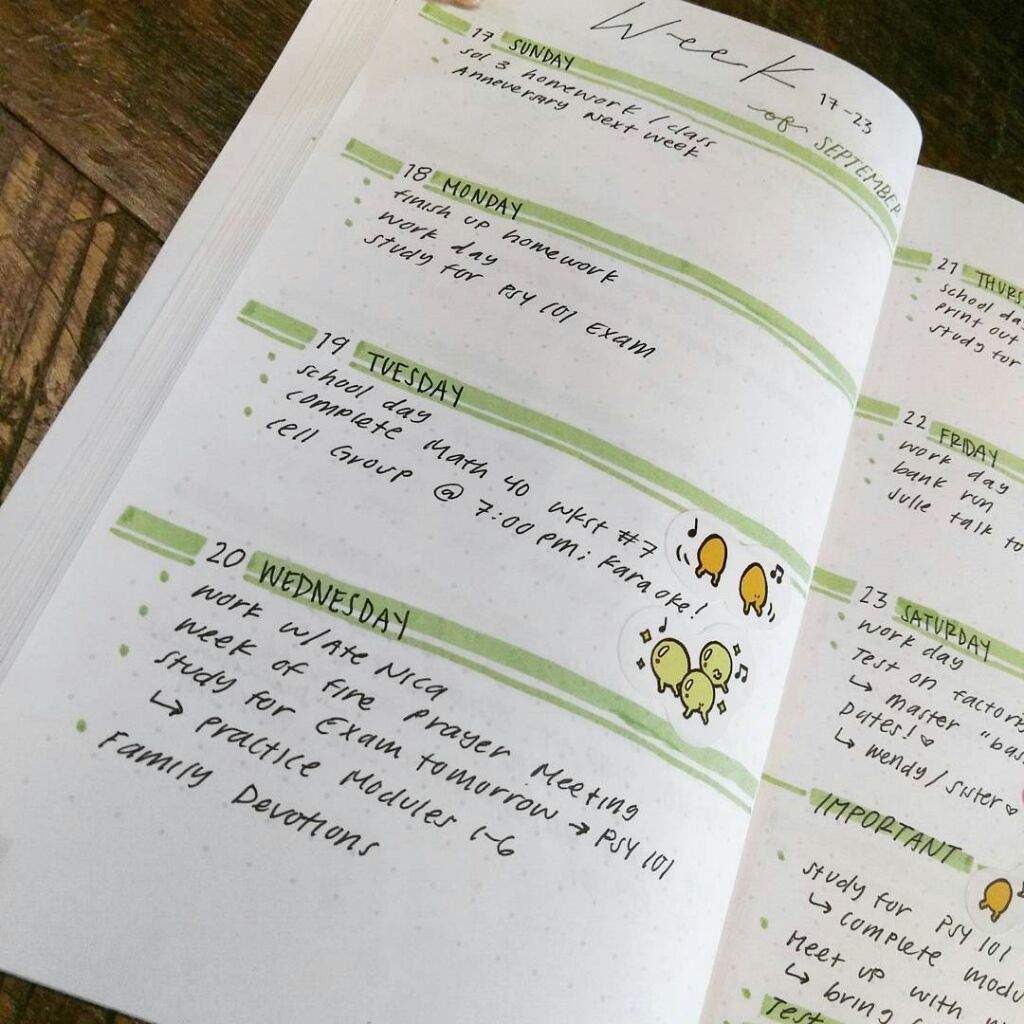 Week
17-23
of SEPTEMBER
17 SUNDAY
sol 3 homework / class
Anneversary Next week
18 MONDAY
finish up homework
work day
study for PSY 101 Exam
19 TUESDAY
school day
complete Math 40 wkst #7
Cell Group @ 7:00 pm; Karaoke!
20 WEDNESDAY
work w/Ate Nica
week of fire prayer Meeting
study for Exam tomorrow → PSY 101
↳ practice Modules 1-6
Family Devotions
21 THURS
school da
print out
study for
22 FRIDAY
work day
bank run
Julie talk to
23 SATURDAY
work day
Test on factori
↳ master "bas
Dates! ♡
↳ wendy / sister ♡
IMPORTANT
study for PSY 101
↳ complete modu
Meet up with
↳ bring
Test